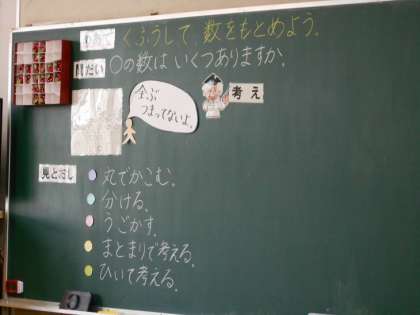 めあて くふうして、数をもとめよう。
問だい ○の数は いくつありますか。
全ぶ
つまってないよ。
考え
見とおし
丸でかこむ。
分ける。
うごかす。
まとまりで考える。
ひいて考える。